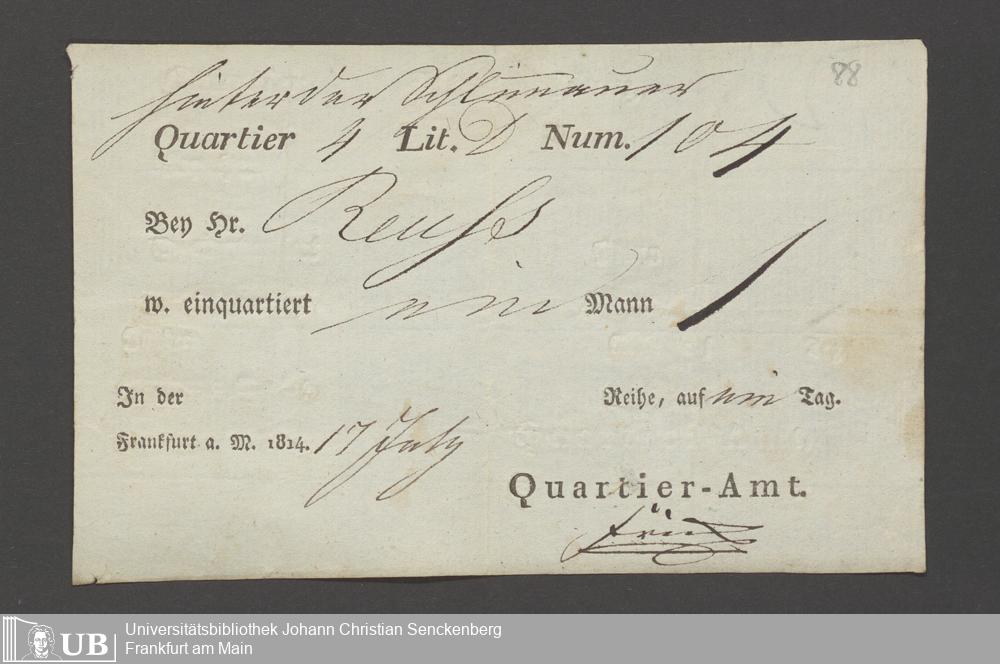 88
hinter der Schlimauer
Quartier 4 Lit. D Num. 104
Bey Hr. Reuhs
w. einquartiert ein Mann 1
In der Reihe, auf ein Tag.
Frankfurt a. M. 1814. 17 July
Quartier-Amt.
UB Universitätsbibliothek Johann Christian Senckenberg
Frankfurt am Main